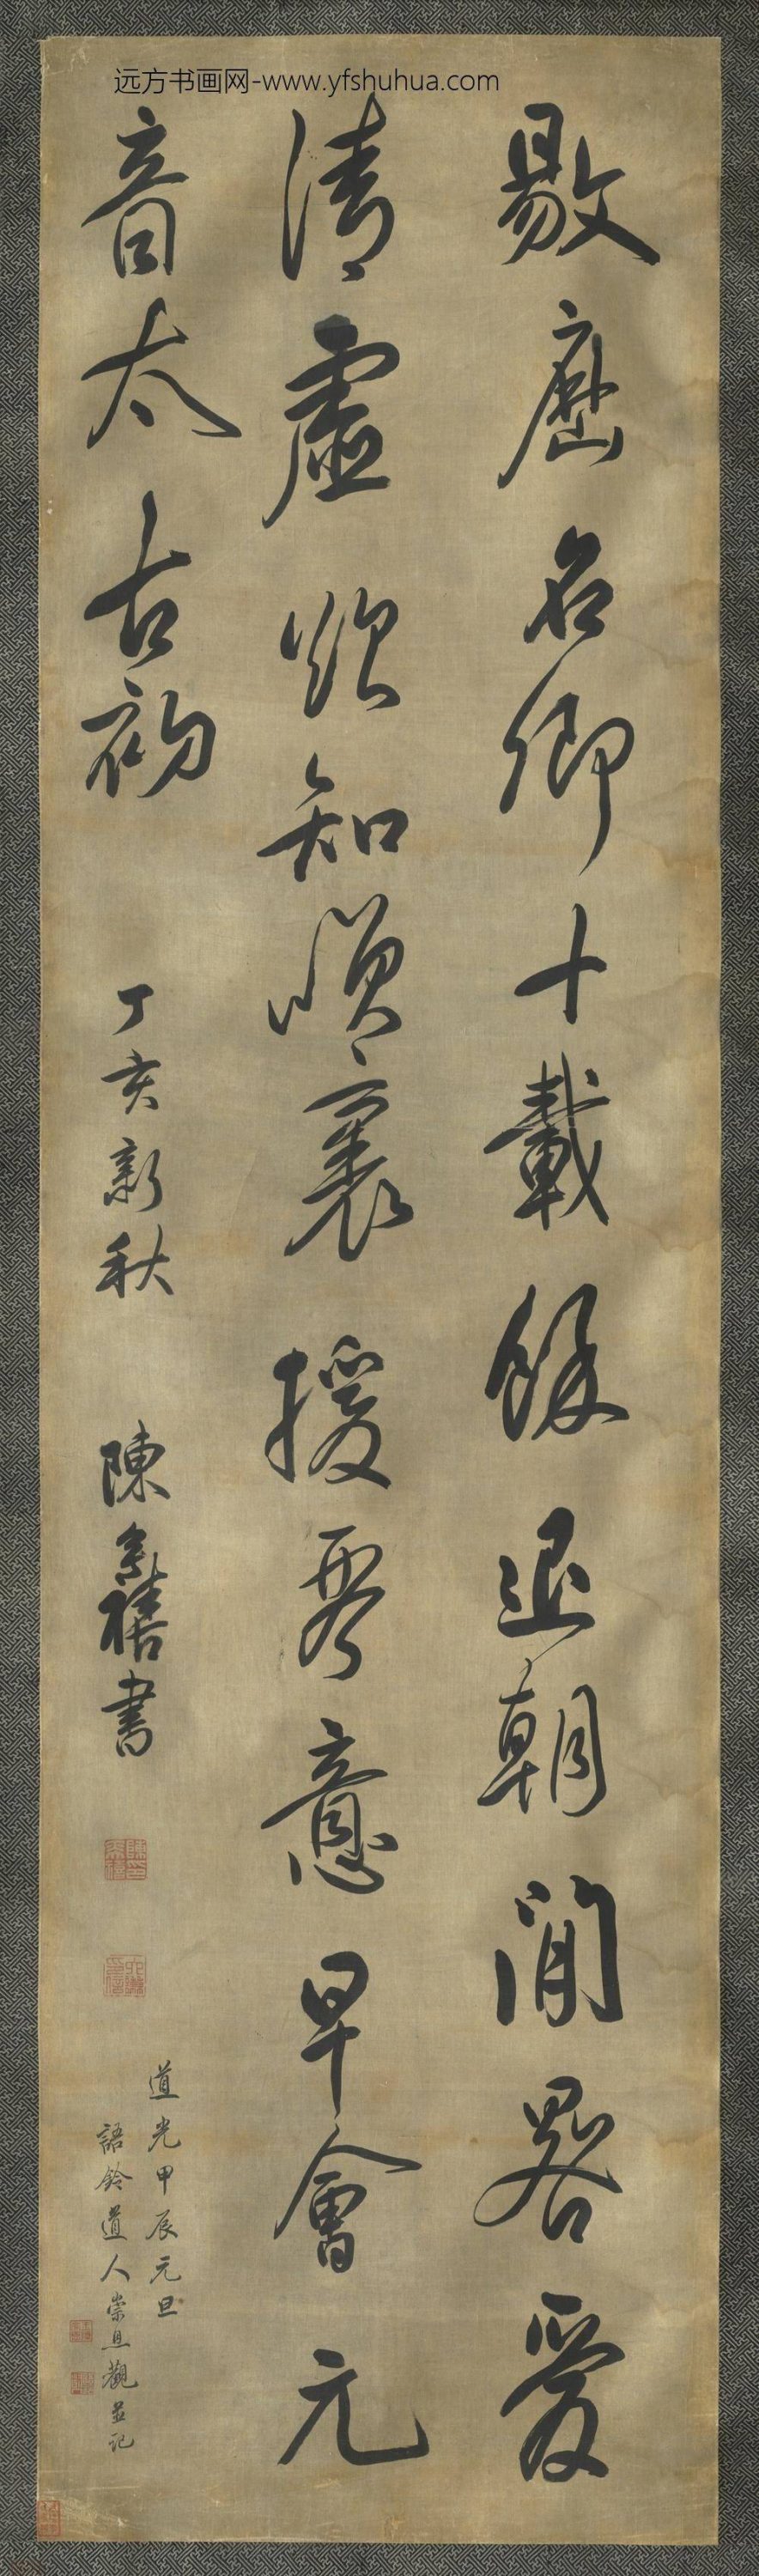 远方书画网-www.yfshuhua.com
敭歷名卿十載餘退朝閒署愛
清虛欲知順裏援琴意早會元
音太古初
丁亥新秋
陳奕禧書
道光甲辰元旦
語鈴道人崇恩觀並記